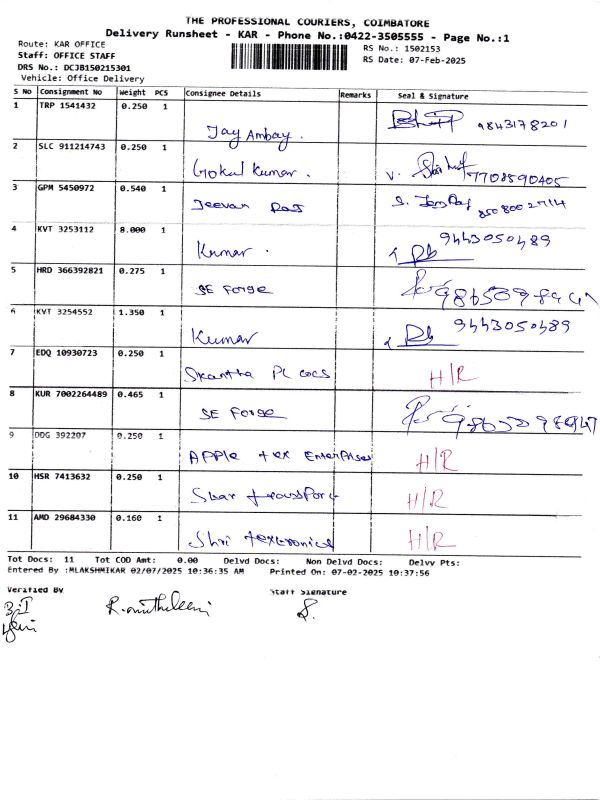 THE PROFESSIONAL COURIERS, COIMBATORE
Delivery Runsheet - KAR - Phone No.:0422-3505555 - Page No.:1
Route: KAR OFFICE
RS No.: 1502153
Staff: OFFICE STAFF
RS Date: 07-Feb-2025
DRS No.: DCJB150215301
Vehicle: Office Delivery
S No Consignment No Weight PCS Consignee Details Remarks Seal & Signature
1 TRP 1541432 0.250 1 Jay Ambay. 9843178201
2 SLC 911214743 0.250 1 Gokul Kumar. V. 7708590405
3 GPM 5450972 0.540 1 Jeevan Raj S.
4 KVT 3253112 8.000 1 Kumar. 9443050489
5 HRD 366392821 0.275 1 SE Forge
6 KVT 3254552 1.350 1 Kumar 9443050489
7 EDQ 10930723 0.250 1 H/R
8 KUR 7002264489 0.465 1 SE Forge
9 DDG 392207 0.250 1 Apple tex Enterprises H/R
10 HSR 7413632 0.250 1 Star transport H/R
11 AMD 29684330 0.160 1 Shri textronics H/R
Tot Docs: 11 Tot COD Amt: 0.00 Delvd Docs: Non Delvd Docs: Delvy Pts:
Entered By :MLAKSHMIKAR 02/07/2025 10:36:35 AM Printed On: 07-02-2025 10:37:56
Verified By Staff Signature